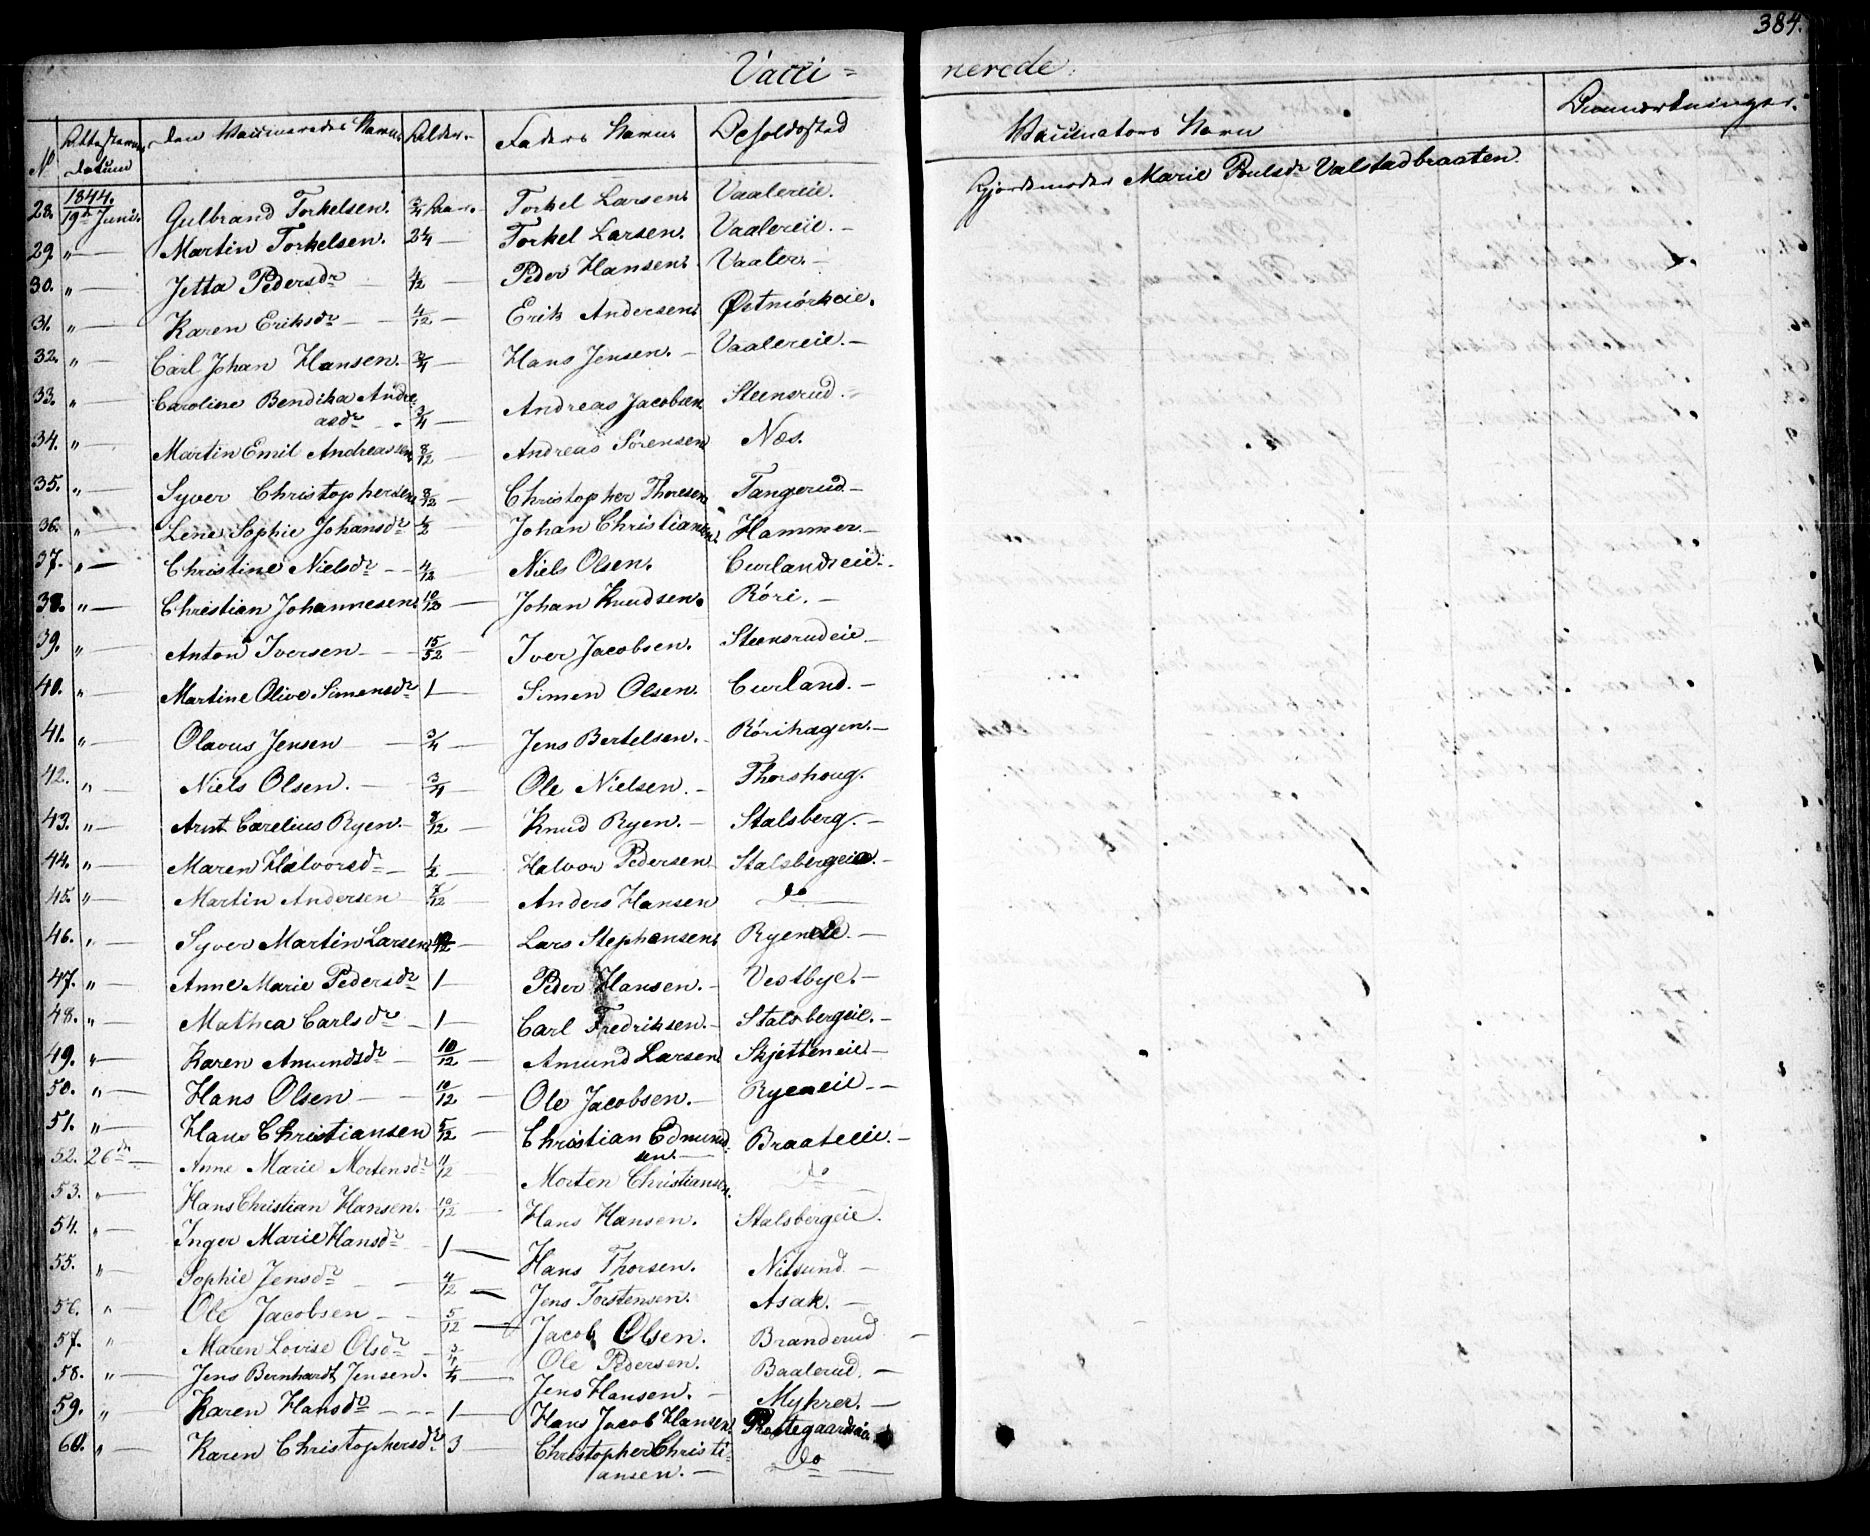 384.
Vacci= nerede.
No Attestens datum den Vaccineredes Navn Alder. Faders Navn Opholdssted Vaccinators Navn Anmærkninger.
1844.
28. 19de Juni. Gulbrand Torkelsen. 3/4 Aar. Torkel Larsen. Vaalereie. Gjordemoder Marie Poulsdr Valstadbraaten
29. " — Martin Torkelsen. 2 1/4 — Torkel Larsen. Vaalereie. —
30. " — Jetta Pedersdr 4/12 — Peder Hansen. Vaaler. —
31. " — Karen Eriksdr — 4/12 — Erik Andersen. Østmörkeie.
32. " — Carl Johan Hansen. 3/4 — Hans Jensen. — Vaalereie. —
33. " — Caroline Bendika Andre
asdr 3/4 — Andreas Jacobsen Steensrud. —
34. " — Martin Emil Andreassen 8/12 — Andreas Sörensen Næs.
35. " — Syver Christophersen 8/12 — Christopher Thoresen Tangerud —
36. " — Lene Sophie Johansdr 1/2 — Johan Christiansen. Hammer —
37. " — Christine Nielsdr — 4/12 — Niels Olsen. Curlandseie. —
38. " — Christian Johannesen. 10/12 — Johan Knudsen. Röri. —
39. " — Anton Iversen — 15/52 — Iver Jacobsen. Steensrudeie —
40. " Martine Olive Simensdr 1 — Simen Olsen. Curland. —
41. " — Olavus Jensen — 3/4 — Jens Bertelsen. — Rörihagen. —
42. " Niels Olsen. — 3/4 — Ole Nielsen. — Thorshoug.
43. " — Arnt Carelius Ryen. — 8/12 — Knud Ryen. — Stalsberg. —
44. " — Maren Halvorsdr — 1/2 — Halvor Pedersen Stalsbergeie. —
45. " — Martin Andersen 7/12 — Anders Hansen do —
46. " — Syver Martin Larsen Lars Stephensen. Ryeneie. —
47. " — Anne Marie Pedersdr 1 — Peder Hansen. — Vestbye. —
48. " — Mathea Carlsdr — 1 — Carl Fredriksen. — Stalsbergeie. —
49. " — Karen Amundsdr — 10/12 — Amund Larsen Skjetteneie. —
50. " — Hans Olsen — 10/12 — Ole Jacobsen. — Ryeneie. —
51. " — Hans Christiansen 5/12 — Christian Edmund
sen. — Braateeie. —
52. 26de — Anne Marie Mortensdr 11/12 — Morten Christiansen. do —
53. " — Hans Christian Hansen. 10/12 — Hans Hansen. Stalsbergeie.
54. " — Inger Marie Hansdr 1 — Hans Thorsen. Nitsund —
55. " — Sophie Jensdr — 4/12 — Jens Torstensen. Asak. —
56. " Ole Jacobsen — 5/12 — Jacob Olsen. Branderud —
57. " Maren Lovise Olsdr — 3/4 Ole Pedersen. Baalerud. —
58. " — Jens Bernhardt Jensen. 1/4 — Jens Hansen. — Myhrer. —
59. " — Karen Hansdr — 1 — Hans Jacob Hansen.
60. " — Karen Christophersdr 3 — Christopher Christi
ansen. — do —